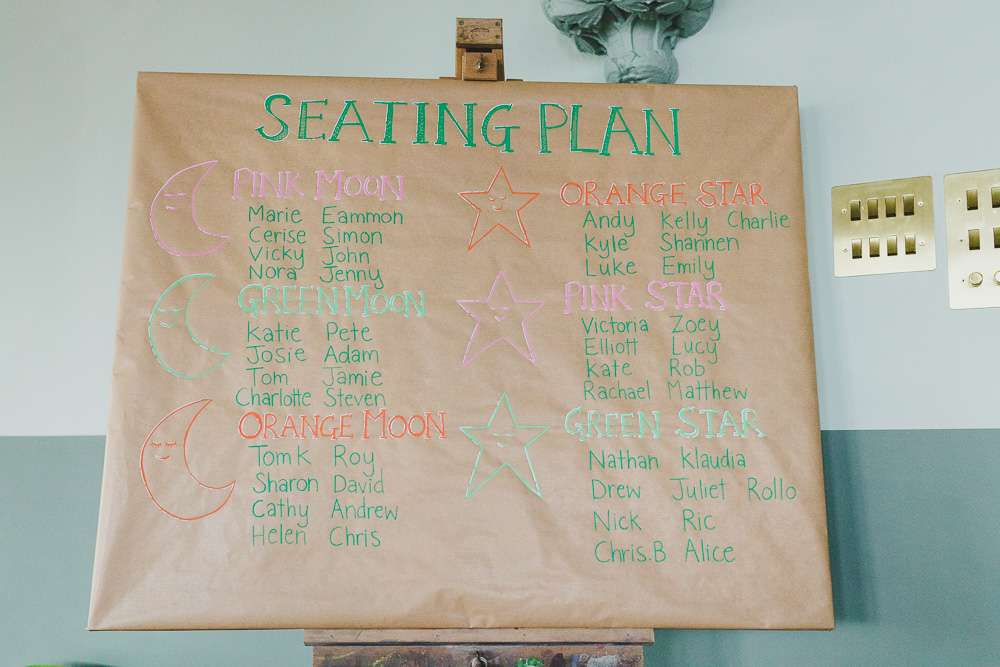 SEATING PLAN
PINK MOON
Marie Eammon
Cerise Simon
Vicky John
Nora Jenny
GREEN MOON
Katie Pete
Josie Adam
Tom Jamie
Charlotte Steven
ORANGE MOON
Tom K Roy
Sharon David
Cathy Andrew
Helen Chris
ORANGE STAR
Andy Kelly Charlie
Kyle Shannen
Luke Emily
PINK STAR
Victoria Zoey
Elliott Lucy
Kate Rob
Rachael Matthew
GREEN STAR
Nathan Klaudia
Drew Juliet Rollo
Nick Ric
Chris.B Alice